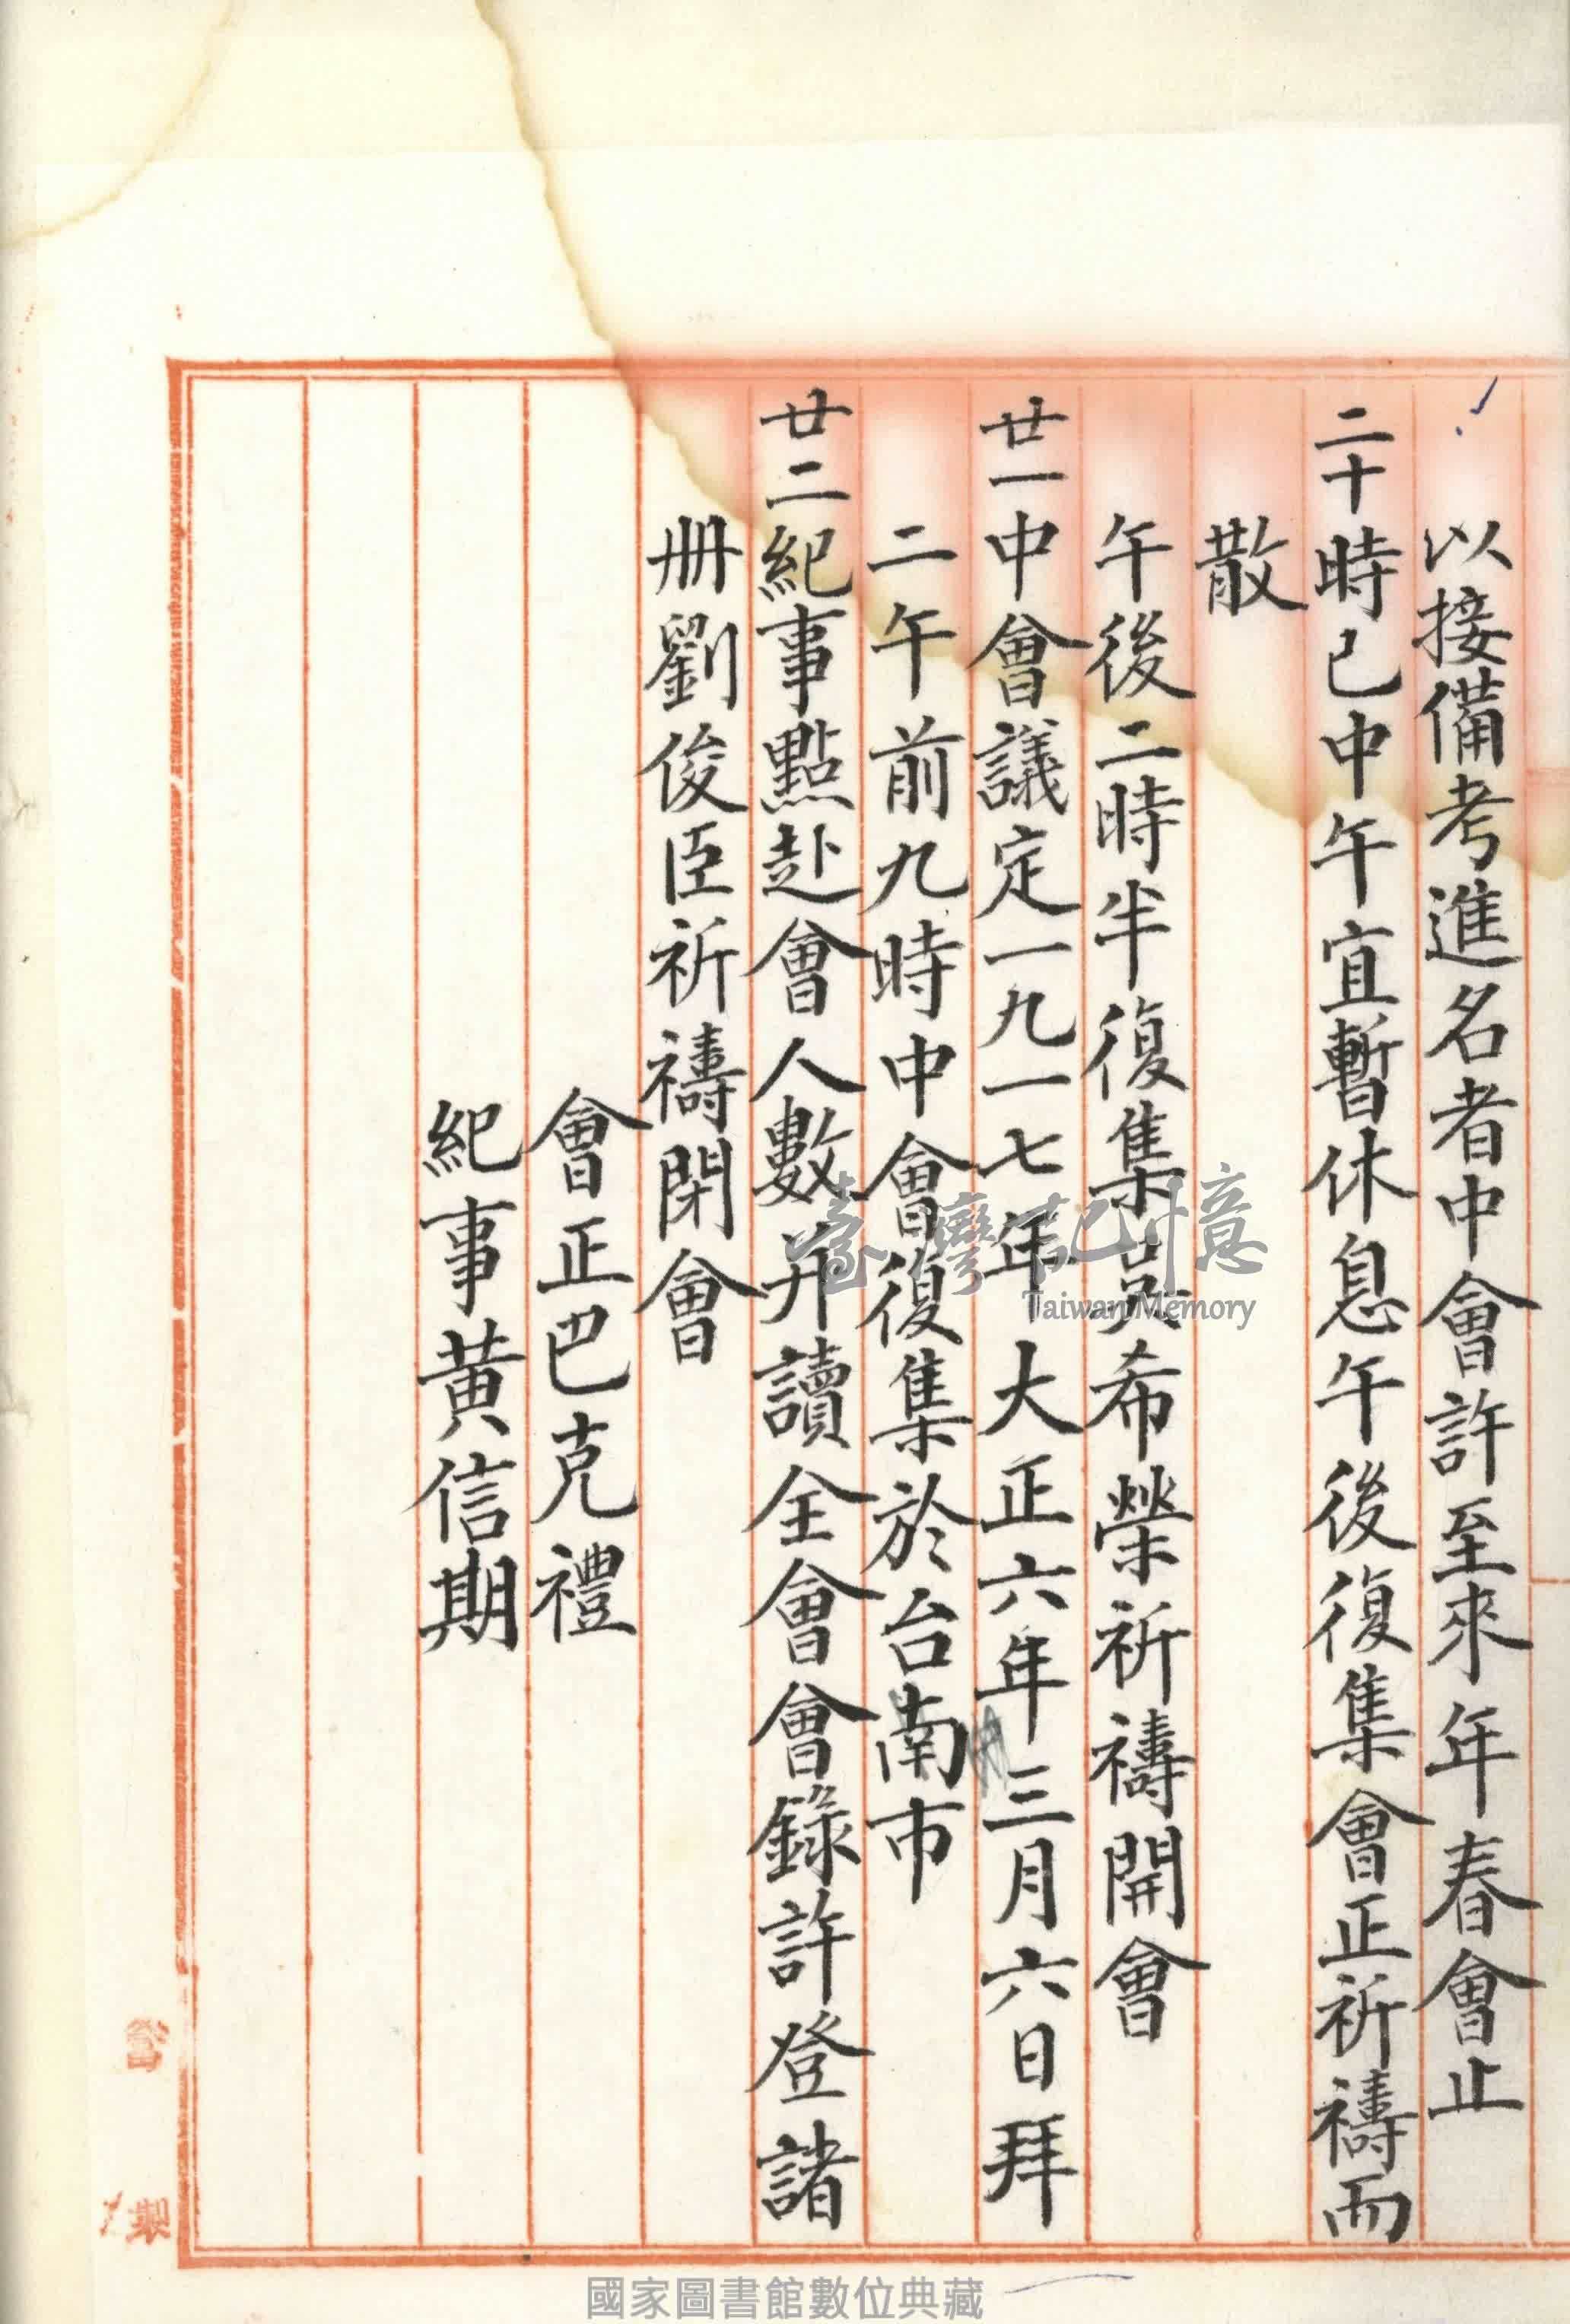 以接備考進名者中會許至來年春會止
二十時已中午宜暫休息午後復集會正祈禱而
散
午後二時半復集吳希榮祈禱開會
廿一中會議定一九一七年大正六年三月六日拜
二午前九時中會復集於台南市
廿二紀事點赴會人數并讀全會會錄許登諸
冊劉俊臣祈禱閉會
會正巴克禮
紀事黃信期
製
臺灣記憶
Taiwan Memory
國家圖書館數位典藏